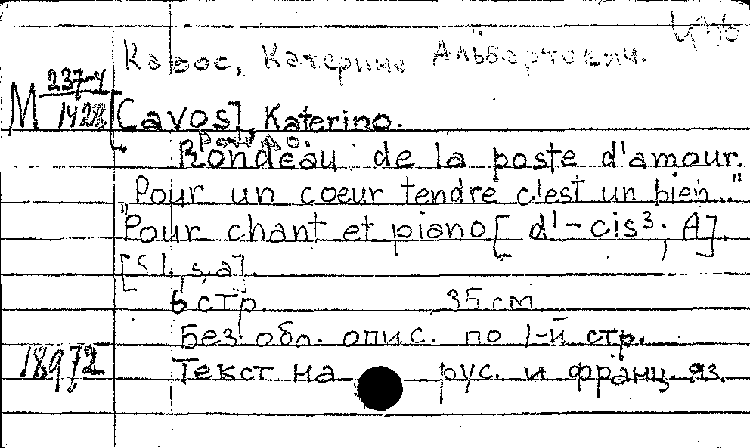 Кавос, Катерино Альбертович.
М 237-4
1428
[Cavos], Katerino.
Rondeau de la poste d'amour.
"Pour un coeur tendre c'est un bien.."
Pour chant et piano [d¹-cis³; A].
[S.l., s.a].
6 стр. 35 см
Без обл. опис. по 1-й стр.
18972
Текст на рус. и франц. яз.